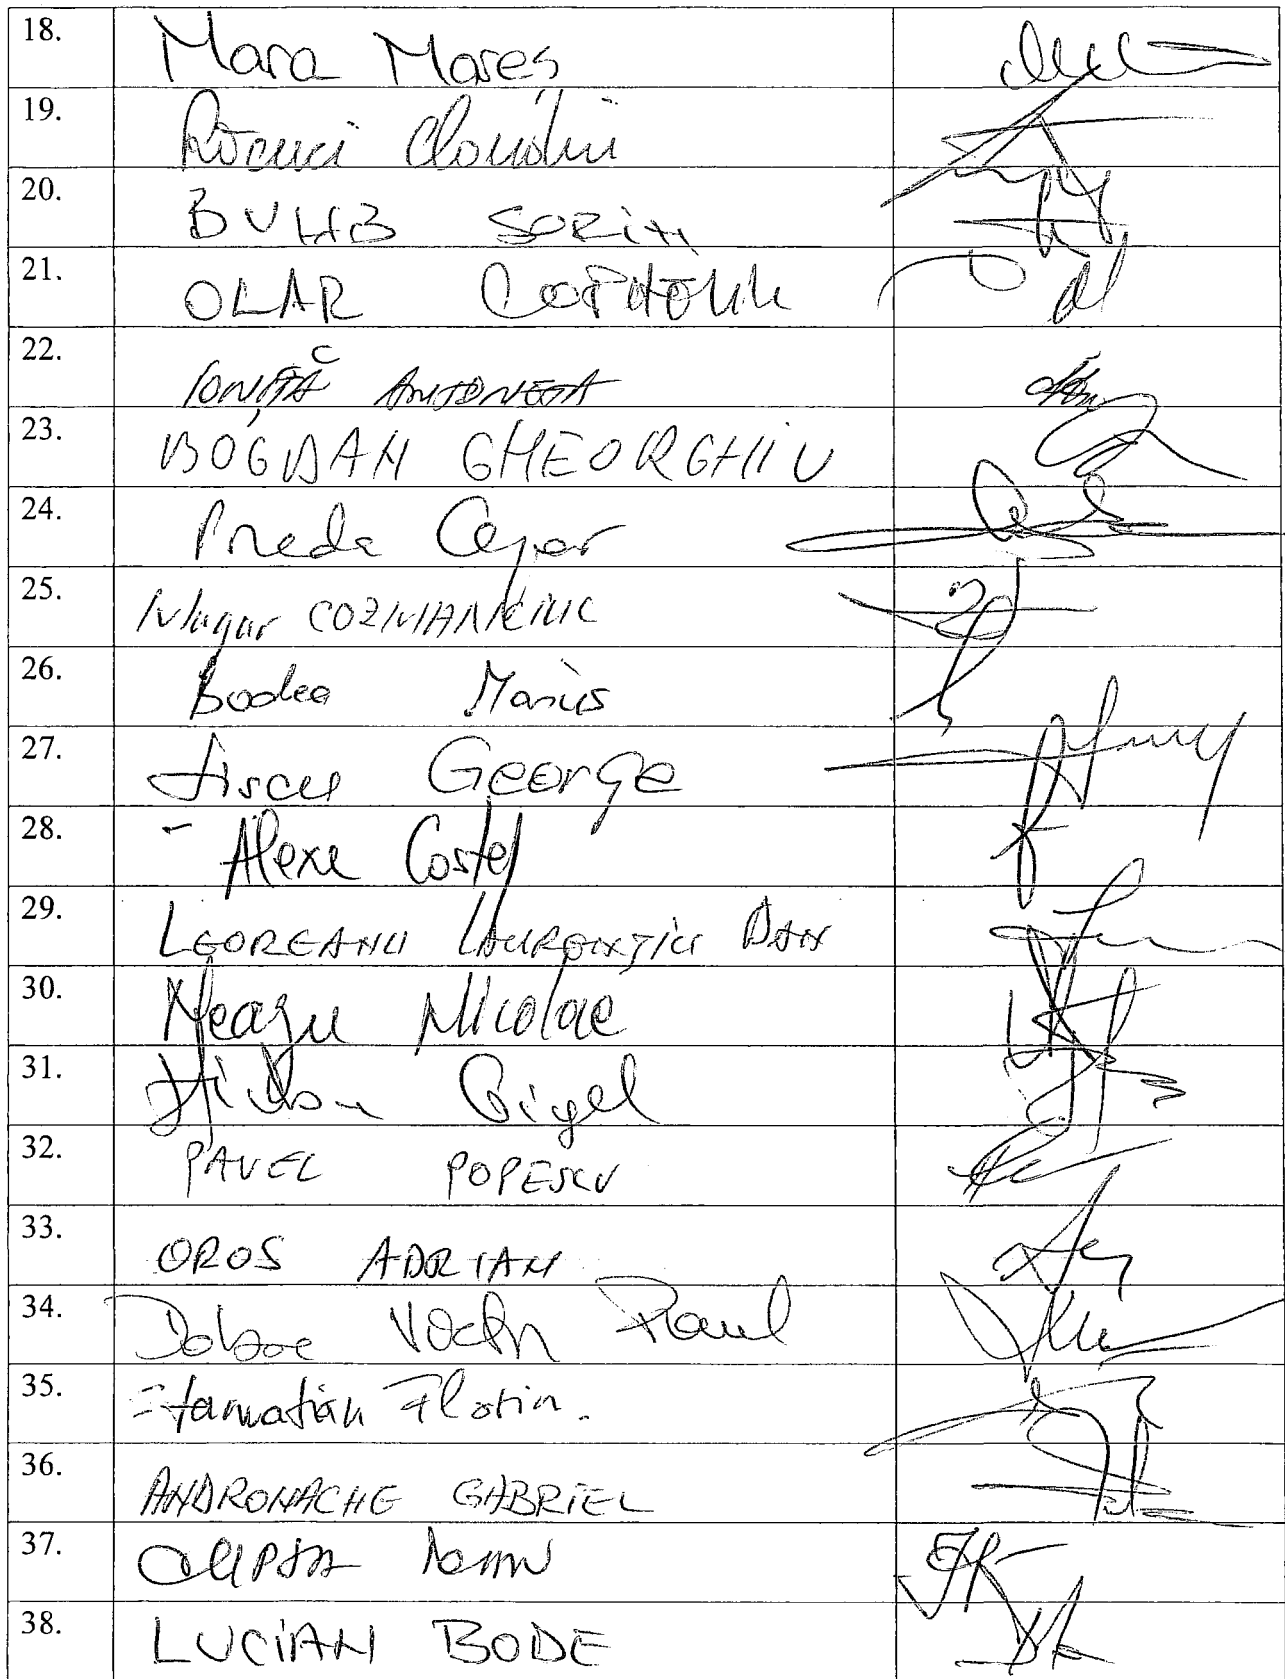 18. Mara Mareș
19. Răcuci Claudiu
20. BUMB SORIN
21. OLAR CORNELIU
22. IONIȚĂ ANTONETA
23. BOGDAN GHEORGHIU
24. Preda Cezar
25. Mugur COZMANCIUC
26. Bodea Marius
27. Tuscu George
28. Alexe Costel
29. LEOREANU LAURENȚIU DAN
30. Neagu Nicolae
31. Gigel
32. PAVEL POPESCU
33. OROS ADRIAN
34. Dobre Victor Paul
35. Stamatian Florin.
36. ANDRONACHE GABRIEL
37.
38. LUCIAN BODE